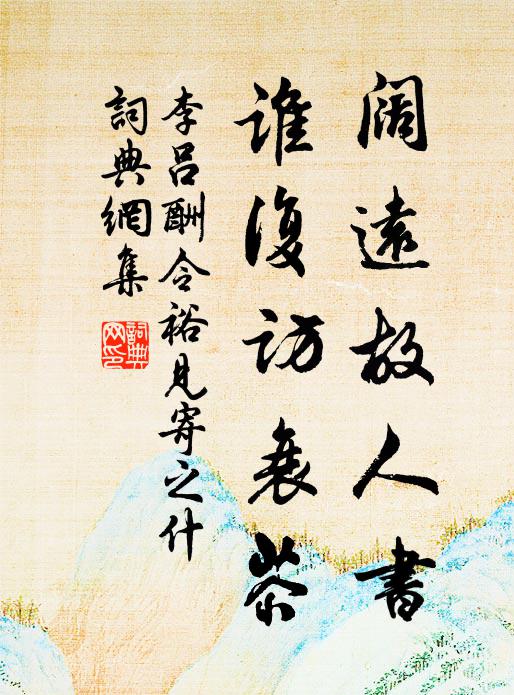 闊遠故人書
誰復訪衰苶
李呂酬令裕見寄之什
詞典網集
詞典
网印